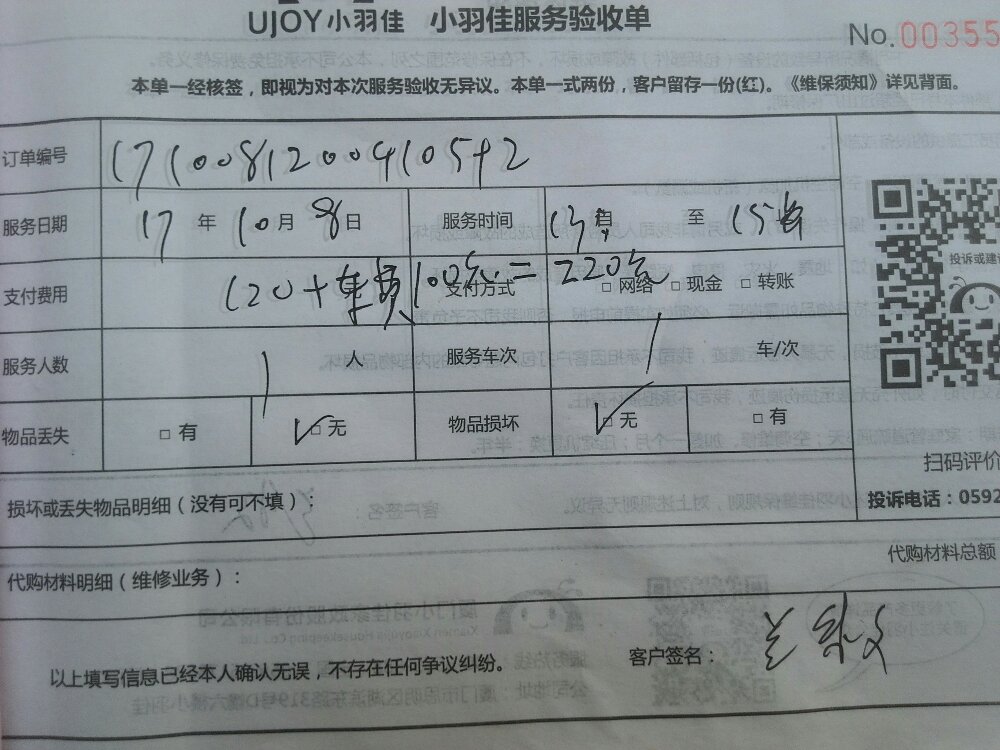 UJOY小羽佳 小羽佳服务验收单
No.00355
本单一经核签，即视为对本次服务验收无异议。本单一式两份，客户留存一份(红)。《维保须知》详见背面。
订单编号 17100812004105+2
服务日期 17 年 10 月 8 日 服务时间 13 至 15
支付费用 120+车费100元=220元 支付方式 □ 网络 □ 现金 □ 转账
投诉或建
服务人数 1 人 服务车次 1 车/次
物品丢失 □ 有 ✓□ 无 物品损坏 ✓□ 无 □ 有
扫码评价
损坏或丢失物品明细（没有可不填）：
投诉电话：0592
代购材料总额
代购材料明细（维修业务）：
以上填写信息已经本人确认无误，不存在任何争议纠纷。 客户签名：